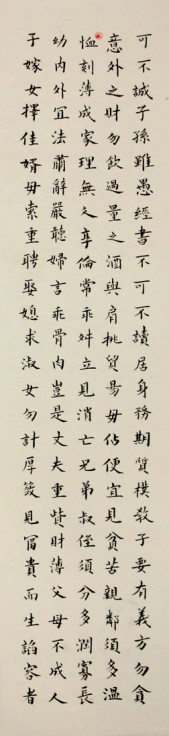 可不誠子孫雖愚經書不可不讀居身務期質樸教子要有義方勿貪
意外之財勿飲過量之酒與肩挑貿易毋佔便宜見貧苦親鄰須多溫
恤刻薄成家理無久享倫常乖舛立見消亡兄弟叔侄須分多潤寡長
幼內外冝法肅辭嚴聽婦言乖骨肉豈是丈夫重貲財薄父母不成人
子嫁女擇佳婿毋索重聘娶媳求淑女勿計厚見冨貴而生諂容者